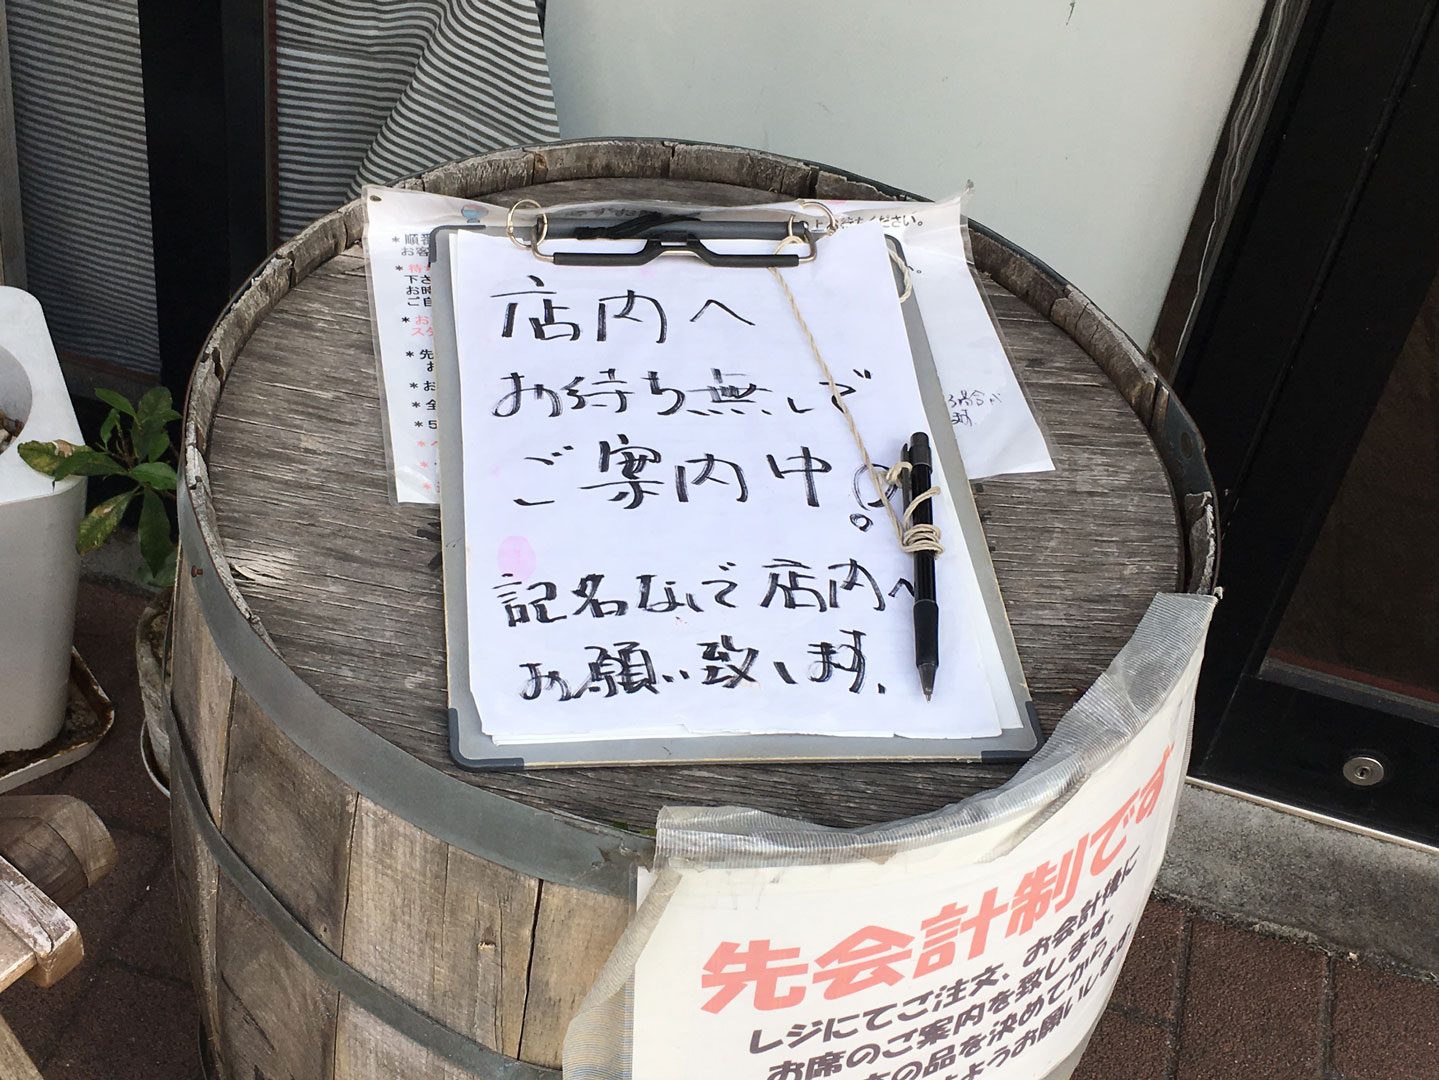 店内へ
お待ち無しで
ご案内中。
記名なしで店内へ
お願い致します。
上お待ちください。
* 順番
お客
* 待
下さ
お時
ご自
* お
スタ
* 先
お
* お
* 全
* 5
先会計制です
レジにてご注文、お会計後に
お席のご案内を致します。
の品を決めてから
ようお願いします